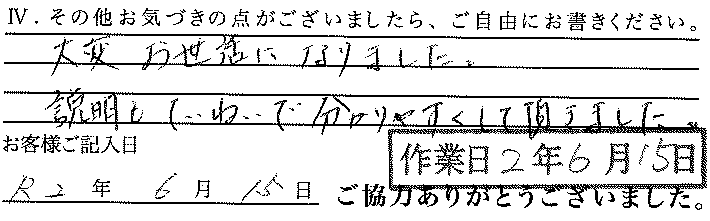 Ⅳ.その他お気づきの点がございましたら、ご自由にお書きください。
大変お世話になりました。
説明もていねいで分かりやすくして頂きました。
お客様ご記入日
作業日2年6月15日
R2年6月15日
ご協力ありがとうございました。